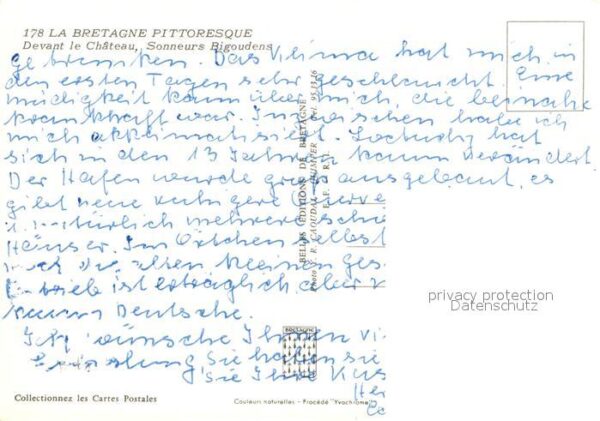 178 LA BRETAGNE PITTORESQUE
Devant le Château, Sonneurs Bigoudens
getrunken. Das Klima hat mich in
den ersten Tagen sehr geschlaucht. Eine
müdigkeit kam über mich, die beinahe
krankhaft war. Inzwischen habe ich
mich akklimatisiert. hat
sich in den 13 Jahren kaum verändert
Der Hafen wurde groß ausgebaut, es
gibt neue ruhigere
natürlich mehrere
Häuser. Im Örtchen selbst
noch die alten kleinen Ges
ist erträglich, aber
kaum Deutsche.
Ich wünsche Ihnen vi
Erholung Sie haben sie
Sie Ihre Kus
Her
BELLES ÉDITIONS DE BRETAGNE
Photo R. CAOUDAL QUIMPER
privacy protection
Datenschutz
BRETAGNE
Collectionnez les Cartes Postales
Couleurs naturelles - Procédé "Yvochrome"